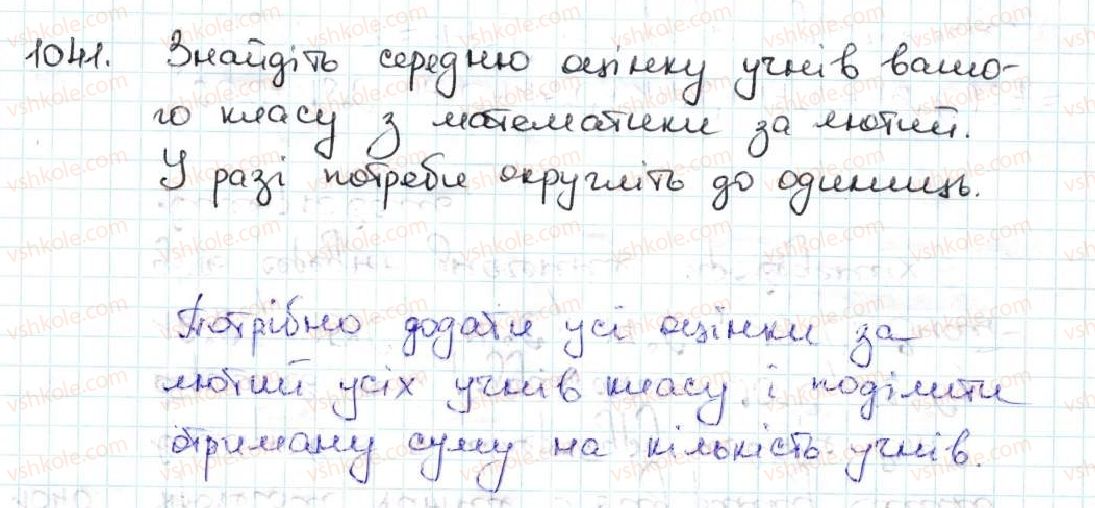 1041. Знайдіть середню оцінку учнів вашо-
го класу з математики за лютий.
У разі потреби округліть до одиниць.
Потрібно додати усі оцінки за
лютий усіх учнів класу і поділити
отриману суму на кількість учнів.